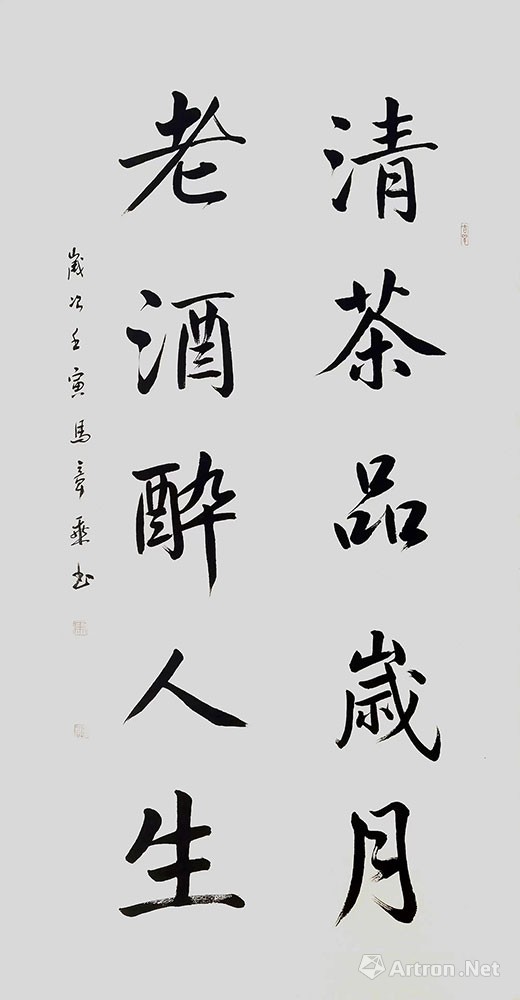 清茶品歲月
老酒醉人生
歲次壬寅馬章乘书
Artron.Net